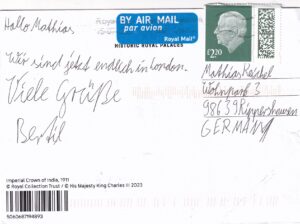 Hallo Mathias,
BY AIR MAIL
par avion
Royal Mail
HISTORIC ROYAL PALACES
£2.20
Wir sind jetzt endlich in London.
Viele Grüße
Bertil
Mathias Reichel
Wohnpark 3
98639 Rippershausen
GERMANY
Imperial Crown of India, 1911
© Royal Collection Trust / © His Majesty King Charles III 2023
5060687984893